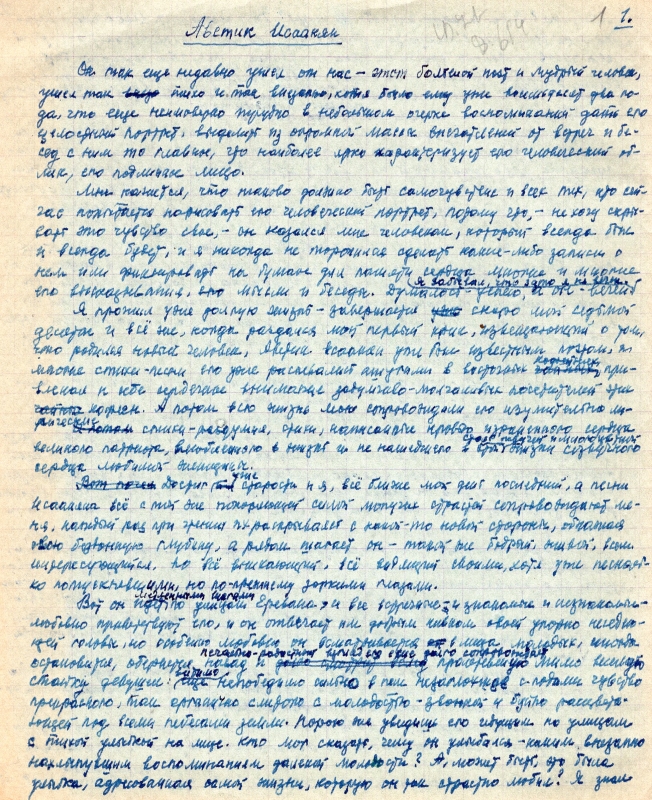 1 1.
Аветик Исаакян
Он так еще недавно ушел от нас – этот большой поэт и мудрый человек,
ушел так тихо и так внезапно, хотя было ему уже восемьдесят два го-
да, что еще неимоверно трудно в небольшом очерке воспоминаний дать его
целостный портрет, выделить из огромной массы впечатлений от встреч и бе-
сед с ним то главное, что наиболее ярко характеризует его человеческий об-
лик, его подлинное лицо.
Мне кажется, что таково должно быть самочувствие и всех тех, кто сей-
час попытается нарисовать его человеческий портрет, потому что, – не хочу скры-
вать это чувство свое, – он казался мне человеком, который всегда был
и всегда будет, и я никогда не торопился сделать какие-либо записи о
нем или фиксировать на бумаге для памяти сердца многие и многие
его высказывания, его мысли и беседы. Я забывал, что
Я прожил уже долгую жизнь – завершаю скоро мой седьмой
десяток и всё же, когда раздался мой первый крик, извещающий о том,
что родился новый человек, Аветик Исаакян уже был известным поэтом, и
многие стихи-песни его уже распевались ашугами в восточных кофейнях, при-
влекая к себе сердечное внимание задумчиво-молчаливых посетителей этих
кофеен. А потом всю жизнь меня сопровождали его изумительные ли-
рические стихи-раздумия, стихи, написанные кровью израненного сердца
великого патриота, влюбленного в жизнь и не нашедшего в созвучного
сердца любимой женщины.
Достиг уже старости и я, всё ближе мой день последний, а песни
Исаакяна всё с той же покоряющей силой могучих страстей сопровождают ме-
ня, каждый раз при чтении их раскрываясь с какой-то новой стороны, обнажая
свою бездонную глубину, а рядом шагает он – такой же бодрый, живой, всем
интересующийся, во всё вникающий, всё видящий своими, хотя уже несколь-
ко потускневшими, но по-прежнему зоркими глазами.
Вот он идет медленными шагами по улицам Еревана, и все встречные, и знакомые и незнакомые,
любовно приветствуют его, и он отвечает им добрым кивком своей упорно неседею-
щей головы, но особенно любовно он всматривается в лица молодых, иногда
остановится, обернется назад и печально-радостным взглядом долго сопровождает прошедшую мимо веселую
стайку девушек: видимо непобедимо сильно в нем незаглохшее с годами чувство
прекрасного, так органично слитого с молодостью – звонкой и будто расцвета-
ющей под всеми небесами земли. Порою вы увидите его идущим по улицам
с тихой улыбкой на лице. Кто мог сказать, чему он улыбался – каким внезапно
нахлынувшим воспоминаниям далекой молодости? А, может быть, это была
улыбка, адресованная самой жизни, которую он так страстно любил? Я знал